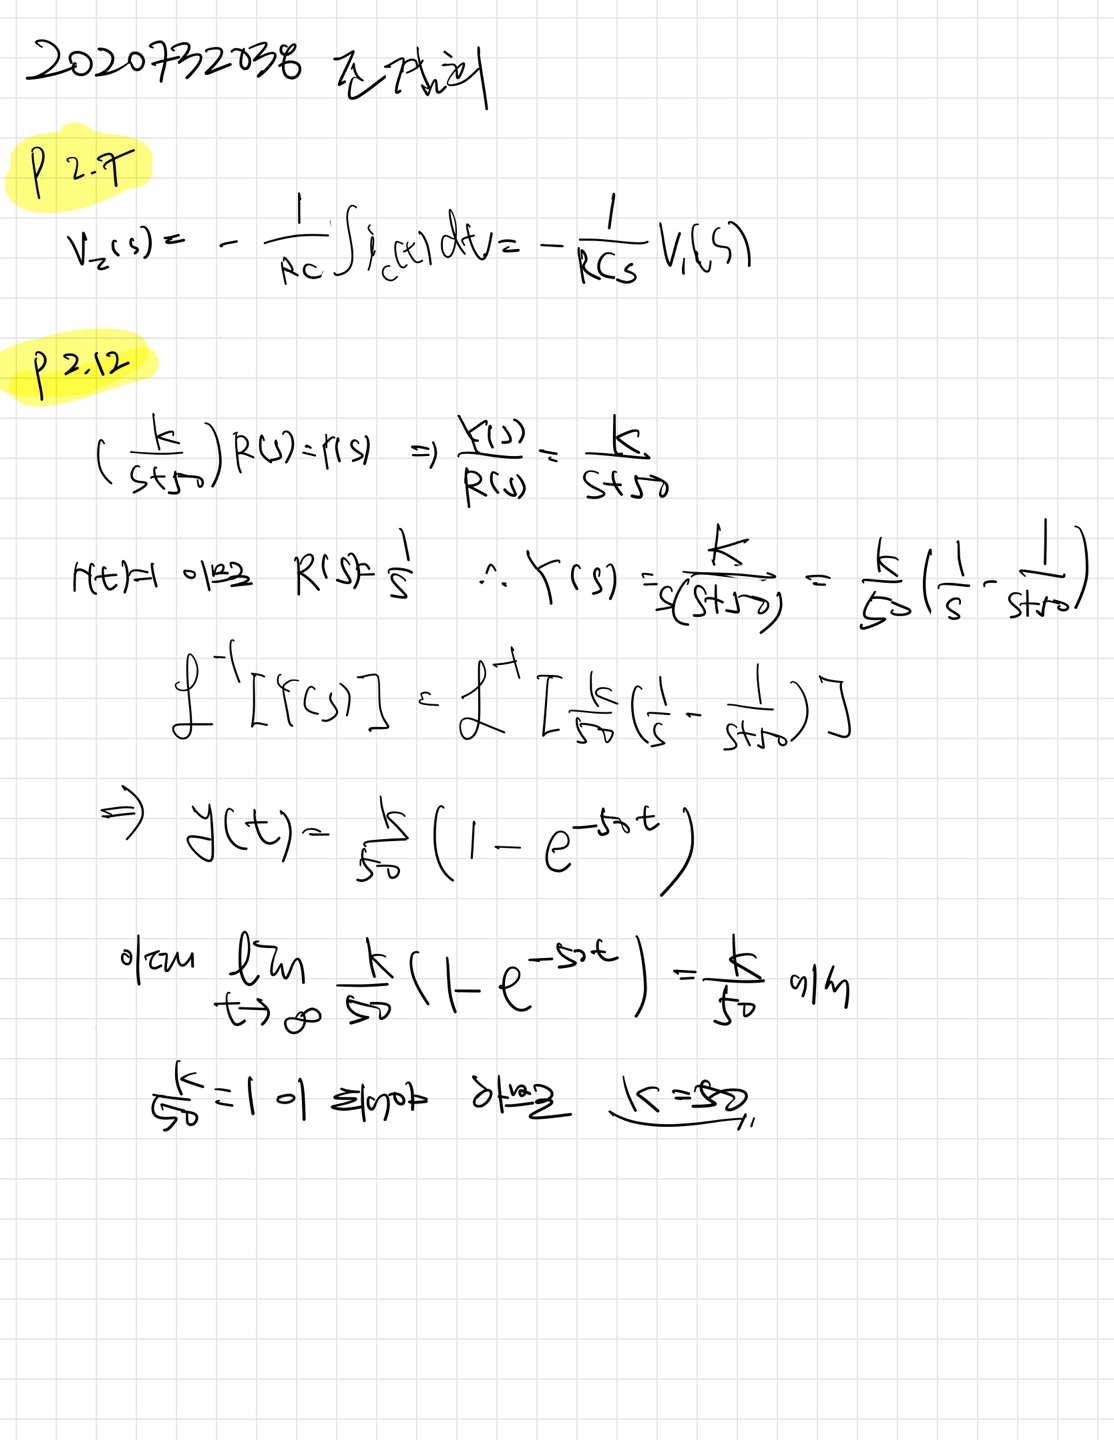 2020732038
P 2.7
V₂(s) = - 1/RC ∫i_c(t) dt = - 1/RCs V₁(S)
P 2.12
(k/(s+50)) R(s) = Y(s) ⇒ Y(s)/R(s) = k/(s+50)
r(t)=1 이므로 R(s)= 1/s ∴ Y(s) = k/(s(s+50)) = k/50 (1/s - 1/(s+50))
ℒ⁻¹[Y(s)] = ℒ⁻¹[k/50 (1/s - 1/(s+50))]
⇒ y(t) = k/50 (1 - e^(-50t))
이때 lim t→∞ k/50 (1 - e^(-50t)) = k/50 에서
k/50 = 1 이 되어야 하므로 k = 50